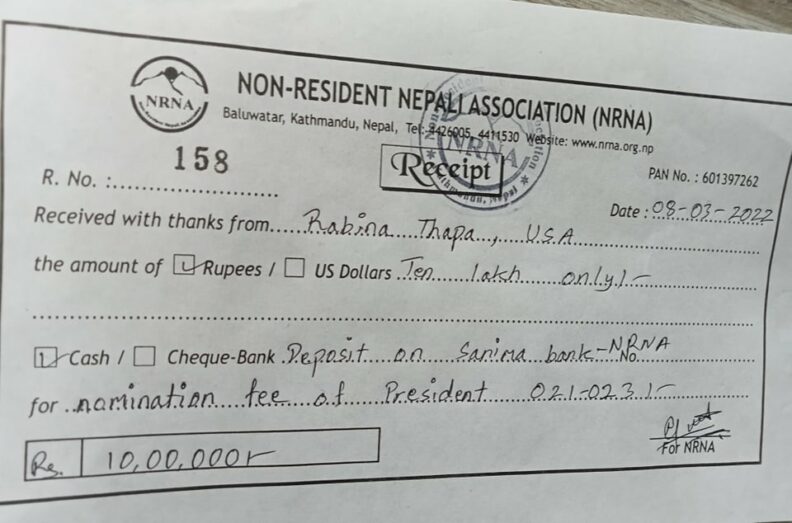 NRNA
NON-RESIDENT NEPALI ASSOCIATION (NRNA)
Baluwatar, Kathmandu, Nepal, Tel: 4426005, 4411530 Website: www.nrna.org.np
158
Receipt
PAN No. : 601397262
R. No. :
Date : 08-03-2022
Received with thanks from Rabina Thapa, USA
the amount of Rupees / US Dollars Ten lakh only/-
Cash / Cheque-Bank Deposit on Sanima bank-NRNA
No.
for nomination fee of President 021-023/-
Rs. 10,00,000/-
For NRNA